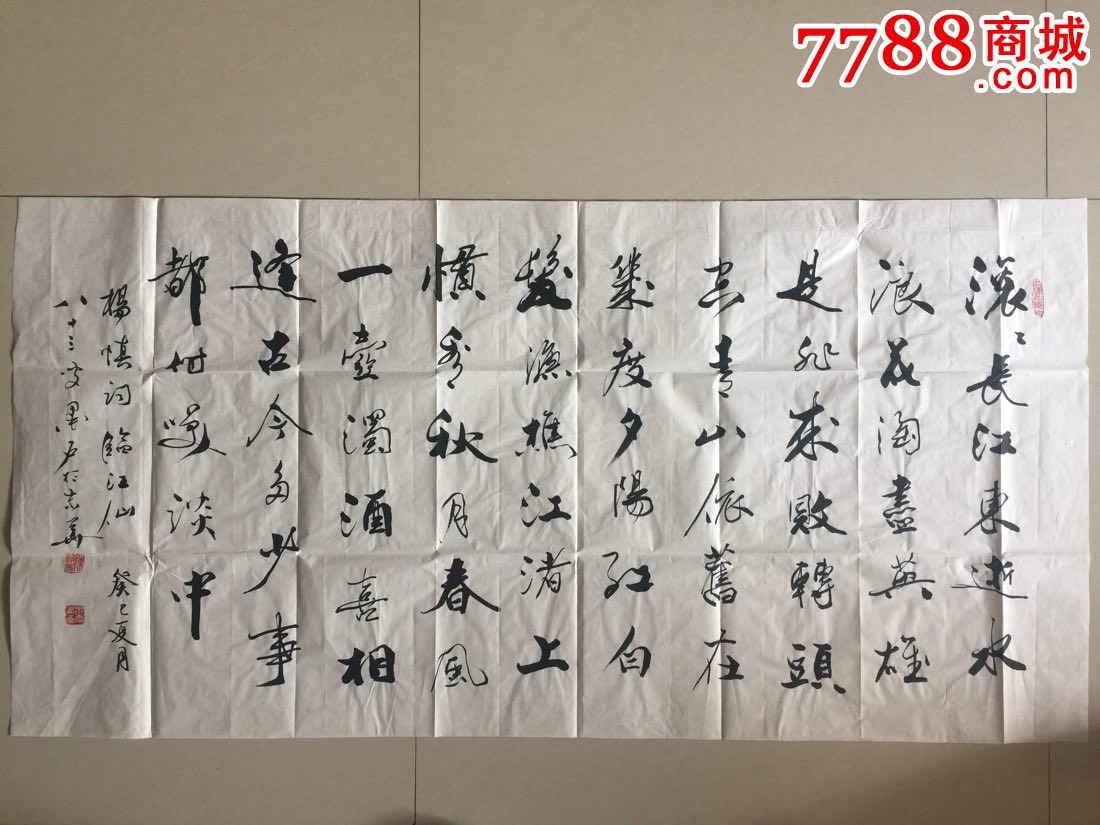 7788商城
.com
滾〻長江東逝水
浪花淘盡英雄
是非成敗轉頭
空青山依舊在
幾度夕陽紅白
髮漁樵江渚上
慣看秋月春風
一壺濁酒喜相
逢古今多少事
都付笑談中
楊慎詞臨江仙 癸巳夏月
八十三叟